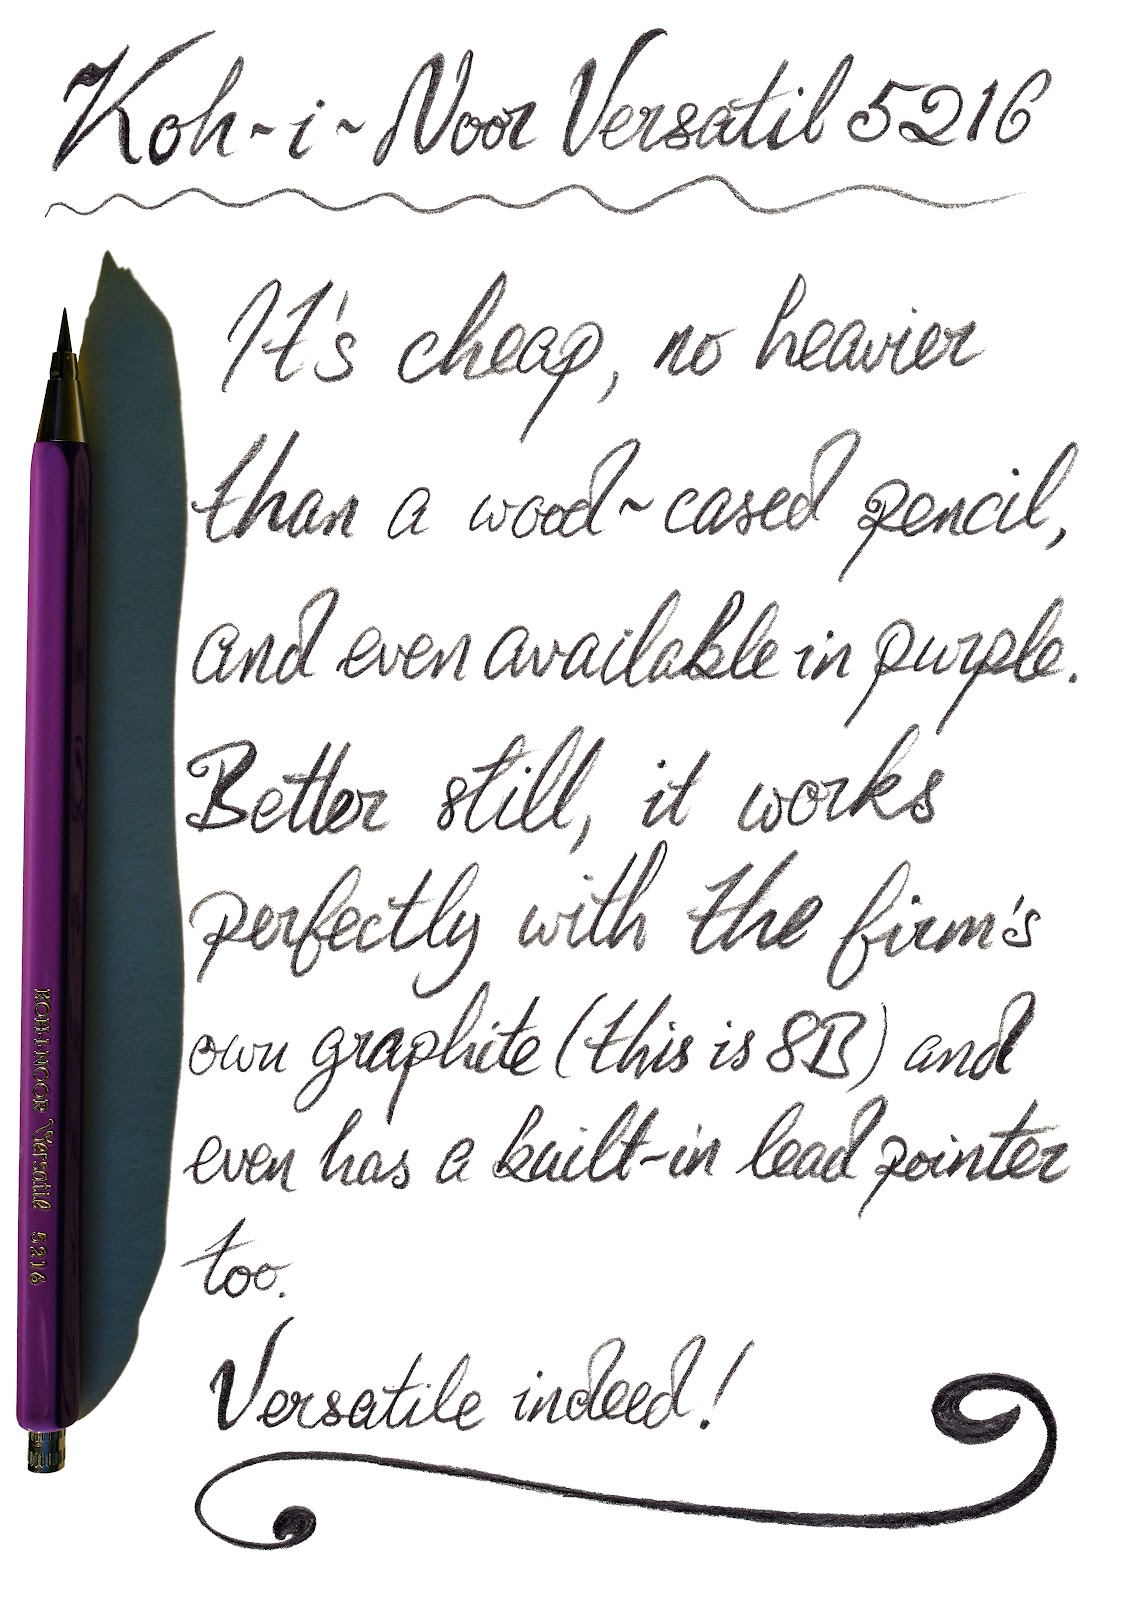 Koh~i~Noor Versatil 5216
It's cheap, no heavier
than a wood~cased pencil,
and even available in purple.
Better still, it works
perfectly with the firm's
own graphite (this is 8B) and
even has a built-in lead pointer
too.
Versatile indeed!
KOH-I-NOOR Versatil 5216